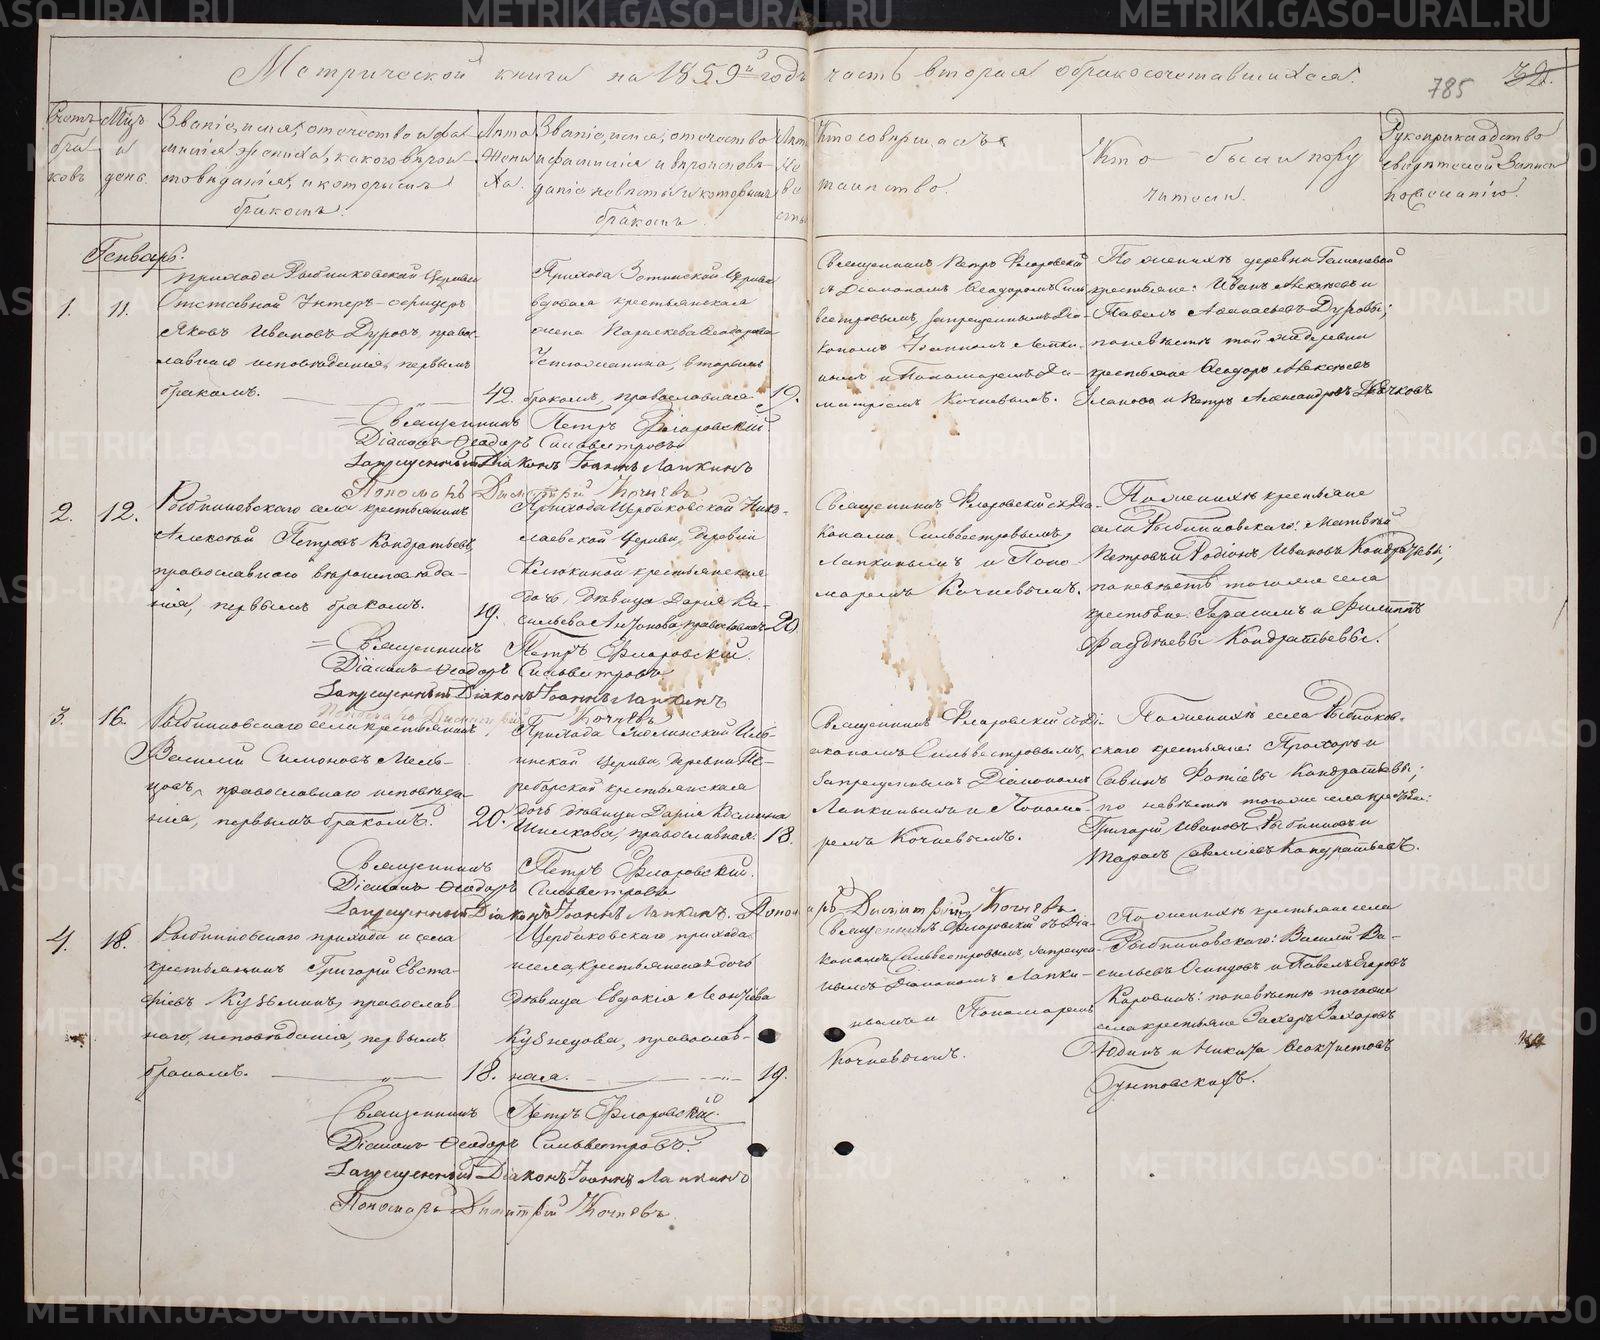 Метрической книги на 1859й годъ часть вторая о бракосочетавшихся.
785
Счетъ браковъ
Мѣц. и день.
Званіе, имя, отечество и фамилія жениха, какого вѣроисповѣданія, и которымъ бракомъ.
Лѣта жениха.
Званіе, имя, отечество и фамилія и вѣроисповѣданіе невѣсты и которымъ бракомъ
Лѣта невѣсты
Кто совершалъ таинство.
Кто были поручители.
Рукоприкладство свидѣтелей записи по желанію.
Генварь.
1.
11.
Прихода Рыбниковской Церкви
Отставной Унтеръ-офицеръ
Яковъ Ивановъ Дуровъ, право-
славнаго исповѣданія, первымъ
бракомъ.
42.
Прихода Зотинской Церкви
вдовая крестьянская
жена Параскева Ѳеодорова
вторымъ
бракомъ, православная
19.
Священникъ Петръ Флоровскій
съ Діакономъ Ѳеодоромъ Силь-
вестровымъ, запрещеннымъ Діа-
кономъ Іоанномъ Лапки-
нымъ и Пономаремъ Ди-
митріемъ Кочневымъ.
По женихѣ деревни
крестьяне: Иванъ Алексѣевъ и
Павелъ Аѳанасьевъ Дуровы;
по невѣстѣ той же деревни
крестьяне Ѳеодоръ Алексѣевъ
и Петръ Александровъ
Священникъ Петръ Флоровскій.
Діаконъ Ѳеодоръ Сильвестровъ
Запрещенный Діаконъ Іоаннъ Лапкинъ
Пономарь Димитрій Кочневъ
2.
12.
Рыбниковскаго села крестьянинъ
Алексѣй Петровъ Кондратьевъ,
православнаго вѣроисповѣда-
нія, первымъ бракомъ.
19.
Прихода Щербаковской Нико-
лаевской Церкви, деревни
Клюкиной крестьянская
дочь, дѣвица Дарія Ва-
сильева Антонова, православная
20.
Священникъ Флоровскій съ Діа-
конами Сильвестровымъ,
Лапкинымъ и Поно-
маремъ Кочневымъ.
По женихѣ крестьяне
села Рыбниковскаго: Матвѣй
Петровъ и Родіонъ Ивановъ Кондратьевы;
по невѣстѣ тогоже села
крестьяне Герасимъ и Филиппъ
Фаддѣевы Кондратьевы.
Священникъ Петръ Флоровскій.
Діаконъ Ѳеодоръ Сильвестровъ
Запрещенный Діаконъ Іоаннъ Лапкинъ
Пономарь Димитрій Кочневъ
3.
16.
Рыбниковскаго села крестьянинъ
Василій Симоновъ Мель-
цовъ, православнаго исповѣда-
нія, первымъ бракомъ.
20.
Прихода Смолинской Иль-
инской Церкви, деревни Пе-
реборской крестьянская
дочь дѣвица Дарія Космина
Шилкова, православная
18.
Священникъ Флоровскій съ Ді-
акономъ Сильвестровымъ,
Запрещеннымъ Діакономъ
Лапкинымъ и Понома-
ремъ Кочневымъ.
По женихѣ села Рыбников-
скаго крестьяне: Прохоръ и
Савинъ Фотіевы Кондратьевы;
по невѣстѣ тогоже села крестьяне:
Григорій Ивановъ Рыбниковъ и
Тарасъ Савеліевъ Кондратьевъ.
Священникъ Петръ Флоровскій.
Діаконъ Ѳеодоръ Сильвестровъ
Запрещенный Діаконъ Іоаннъ Лапкинъ. Пономарь Димитрій Кочневъ
4.
18.
Рыбниковскаго прихода и села
крестьянинъ Григорій Евста-
фіевъ Кузьминъ, православ-
наго исповѣданія, первымъ
бракомъ.
18.
Щербаковскаго прихода
и села, крестьянская дочь
дѣвица Евдокія Леонтіева
Кузнецова, православ-
ная.
19.
Священникъ Флоровскій съ Діа-
кономъ Сильвестровымъ, запреще-
нымъ Діакономъ Лапки-
нымъ и Пономаремъ
Кочневымъ.
По женихѣ крестьяне села
Рыбниковскаго: Василій Ва-
сильевъ Осинцовъ и Павелъ Егоровъ
Коровинъ: по невѣстѣ тогоже
села крестьяне Захаръ Захаровъ
Юдинъ и Никита Ѳеоктистовъ
Священникъ Петръ Флоровскій.
Діаконъ Ѳеодоръ Сильвестровъ.
Запрещенный Діаконъ Іоаннъ Лапкинъ
Пономарь Димитрій Кочневъ
METRIKI.GASO-URAL.RU